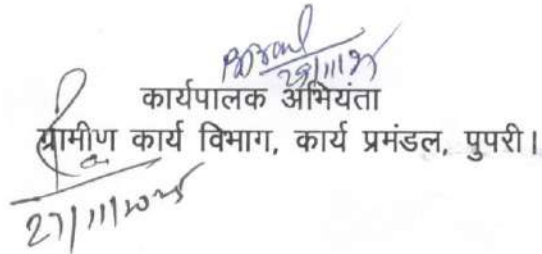 कार्यपालक अभियंता
ग्रामीण कार्य विभाग, कार्य प्रमंडल, पुपरी।
27/11/2025